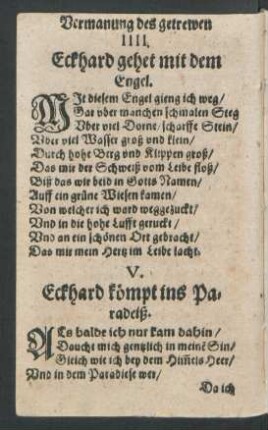 Vermanung des getrewen
IIII.
Eckhard gehet mit dem
Engel.
MIt diesem Engel gieng ich weg/
Gar vber manchen schmalen Steg
Vber viel Dorne/ scharffe Stein/
Vber viel Wasser groß vnd klein/
Durch hohe Berg vnd Klippen groß/
Das mir der Schweiß vom Leibe floß/
Biß das wir beid in Gotts Namen/
Auff ein grüne Wiesen kamen/
Von welcher ich ward weggezuckt/
Vnd in die hohe Lufft geruckt/
Vnd an ein schönen Ort gebracht/
Das mir mein Hertz im Leibe lacht.
V.
Eckhard kömpt ins Pa-
radeiß.
ALs balde ich nur kam dahin/
Daucht mich gentzlich in meinẽ Sin/
Gleich wie ich bey dem Him̃els Heer/
Vnd in dem Paradiese wer/
Da ich